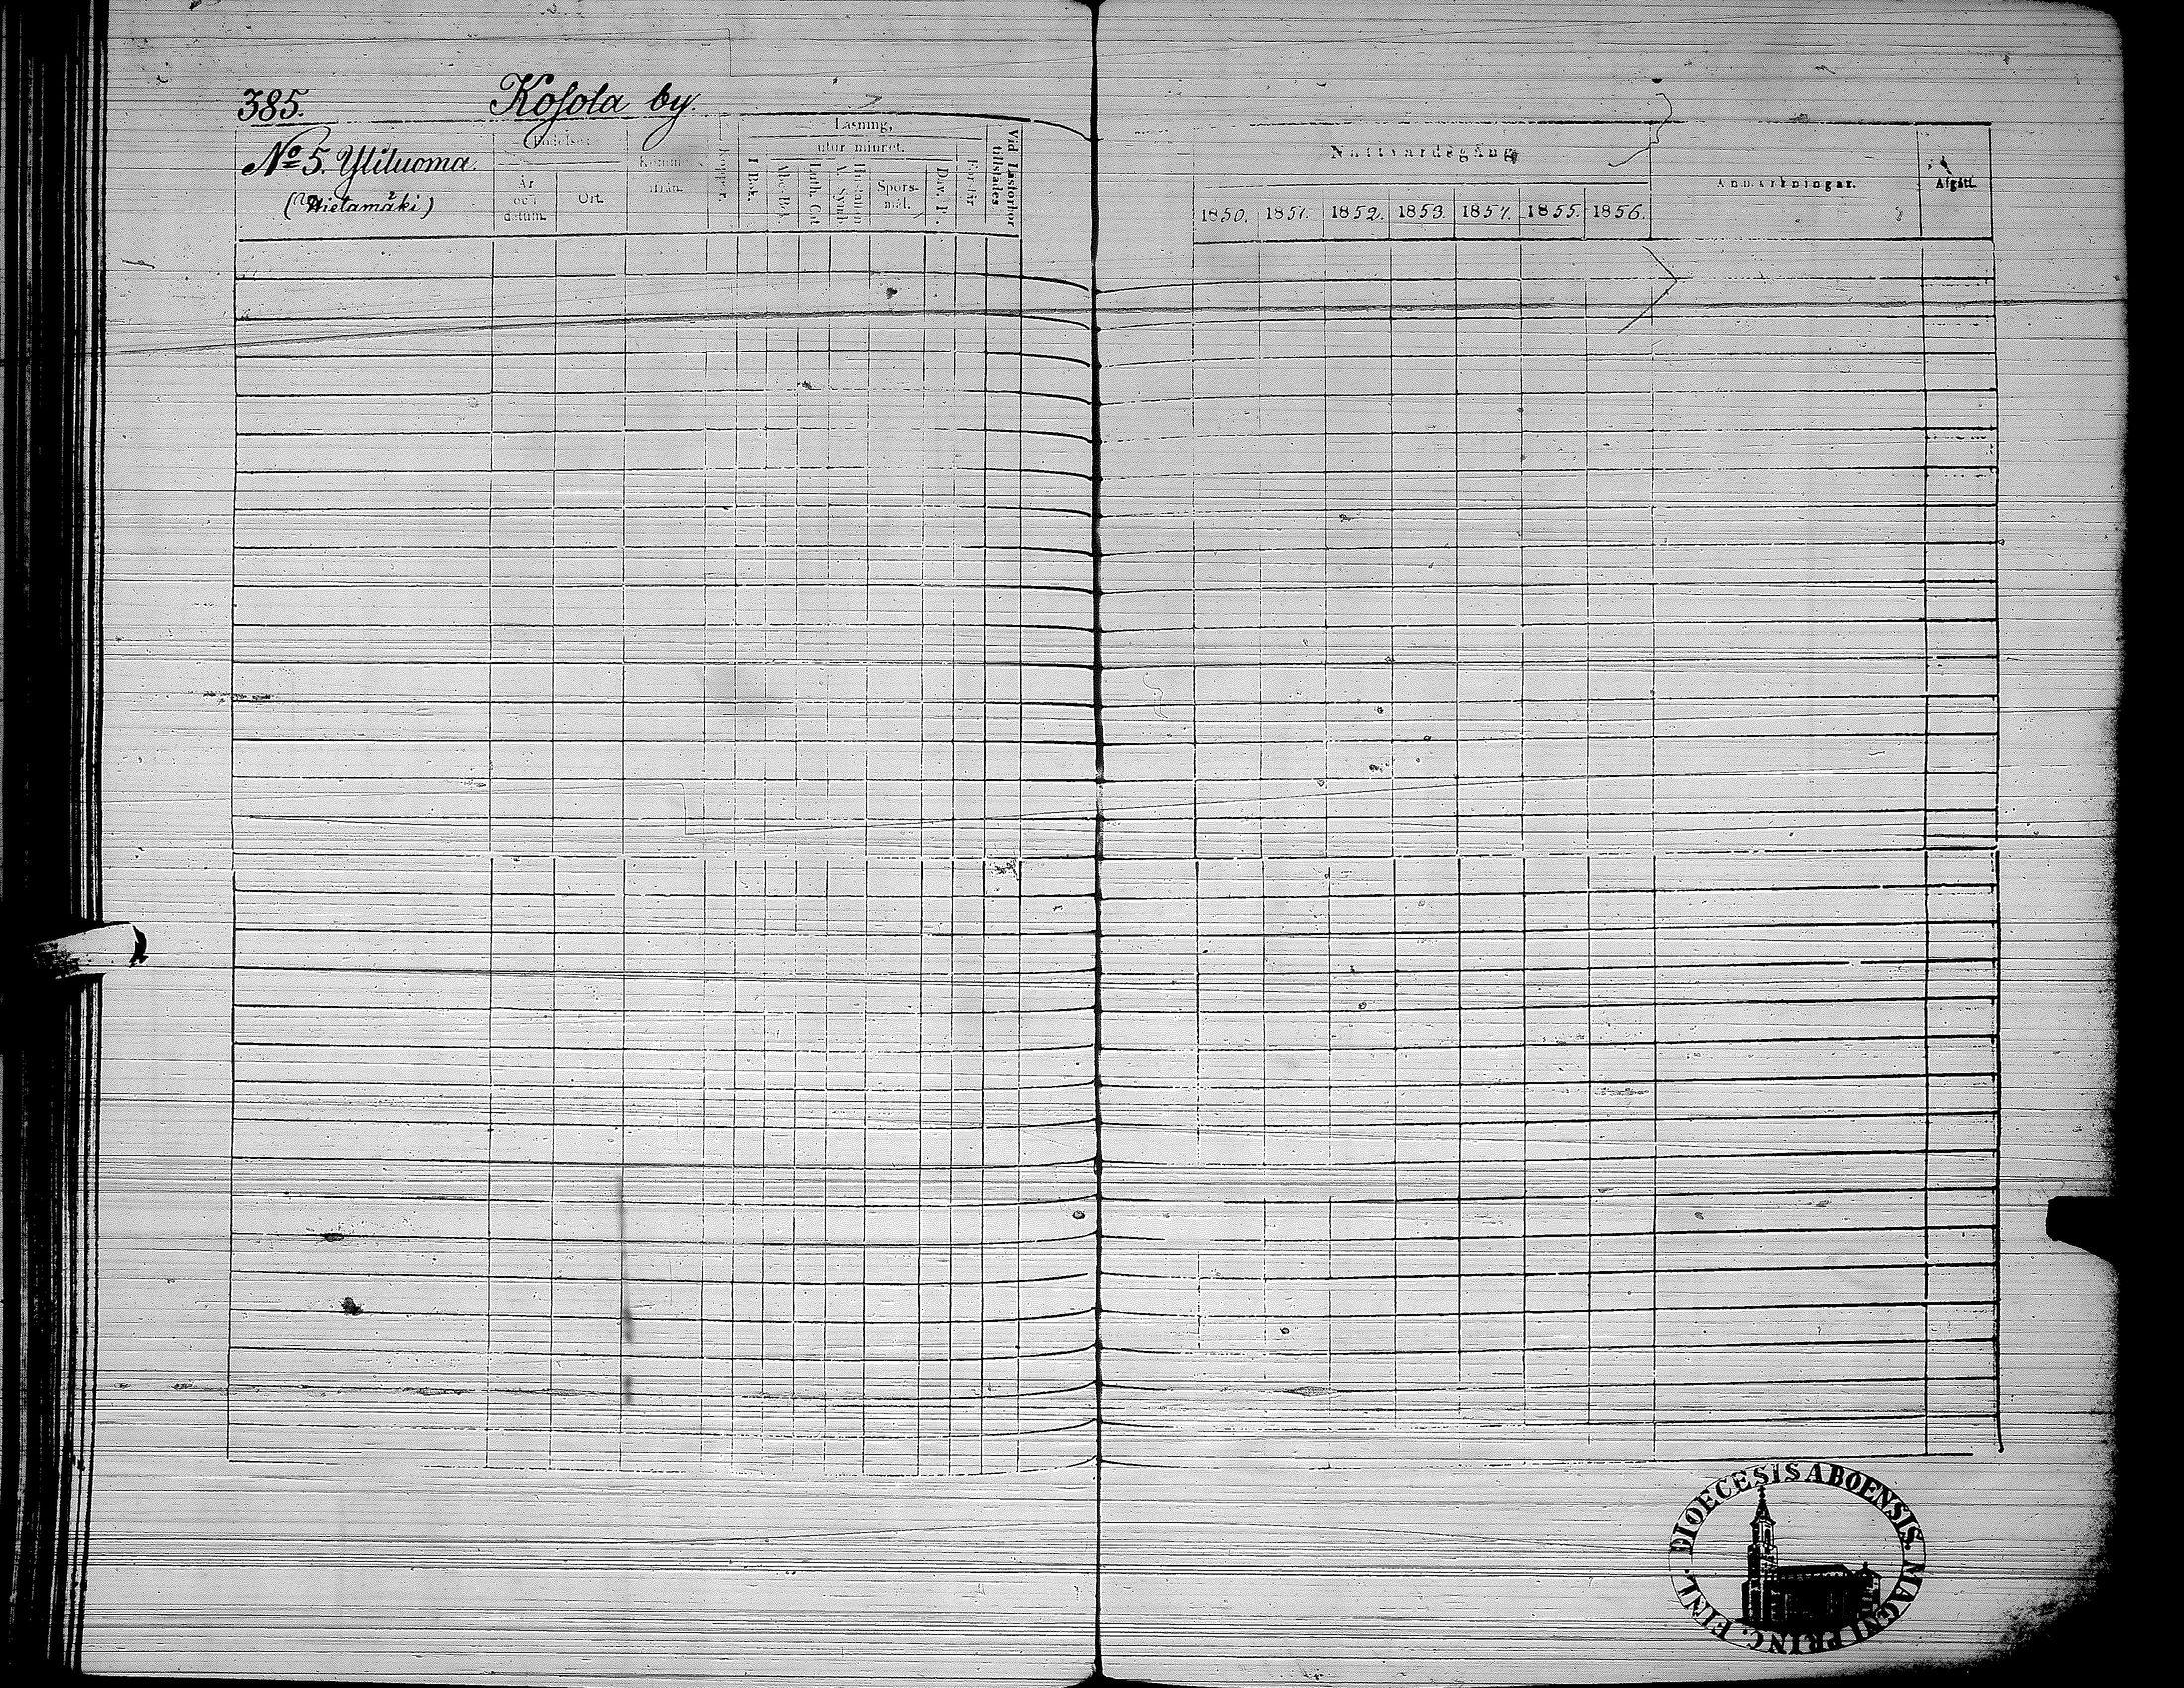 385. Kosola by.
No 5. Yliluoma.
(Hietamäki)
Födelse
År
och
datum.
Ort.
Kommen
ifrån.
Koppor.
Läsning,
utur minnet.
I Bok.
Abc-Bok.
Luth. Cat.
A. Symb.
Spors-
mål.
Dav. Ps.
Förstår
Vid Läsförhör
tillstädes
Nattvardsgång
1850. 1851. 1852. 1853. 1854. 1855. 1856.
Anmärkningar.
Afgått.
DIOECESIS ABOENSIS. MAGNI PRINC. FINL.